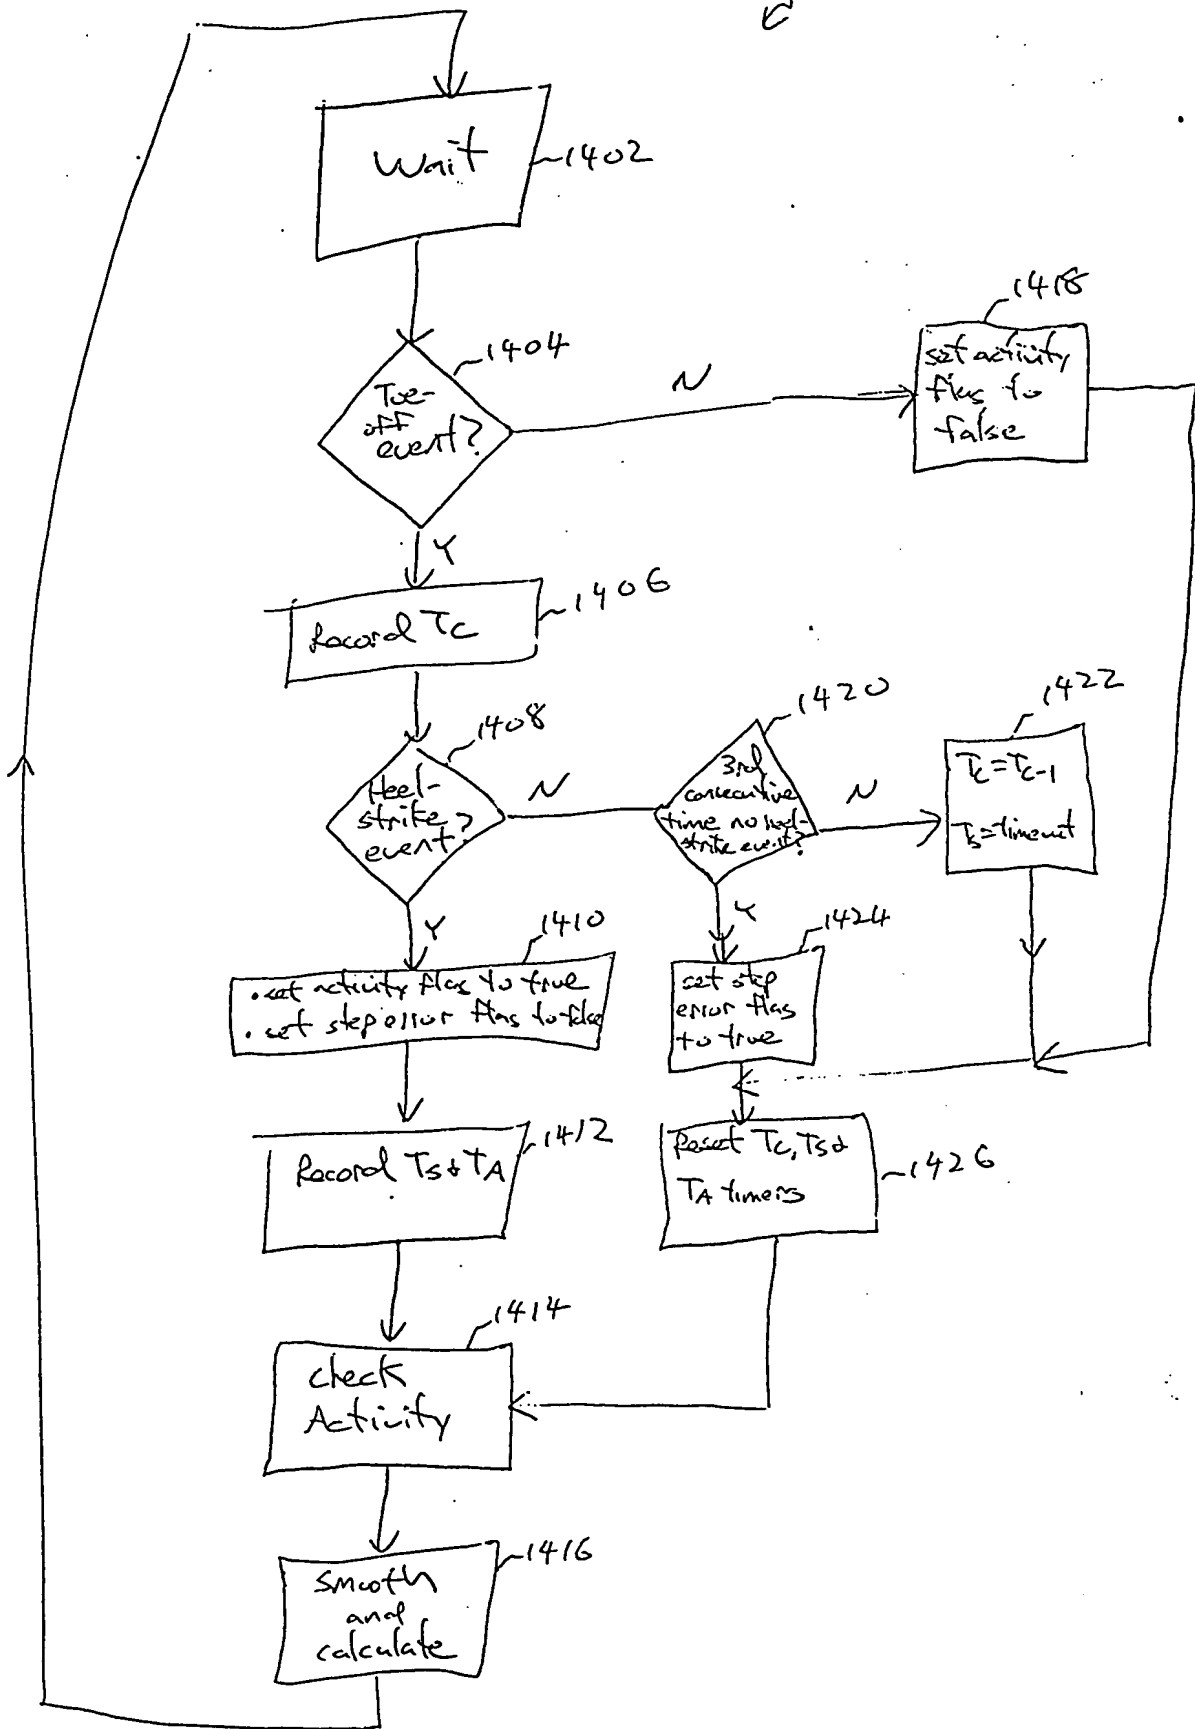 Wait
1402
1418
set activity
flag to
false
1404
Toe-
off
event?
N
Y
1406
Record Tc
1408
Heel-
strike
event?
N
1420
3rd
consecutive
time no heel-
strike event?
N
1422
Tc=Tc-1
Ts=timeout
Y
1410
• set activity flag to true
• set step error flag to false
Y
1424
set step
error flag
to true
1412
Record Ts & TA
Reset Tc, Ts &
TA timers
1426
1414
check
Activity
1416
smooth
and
calculate